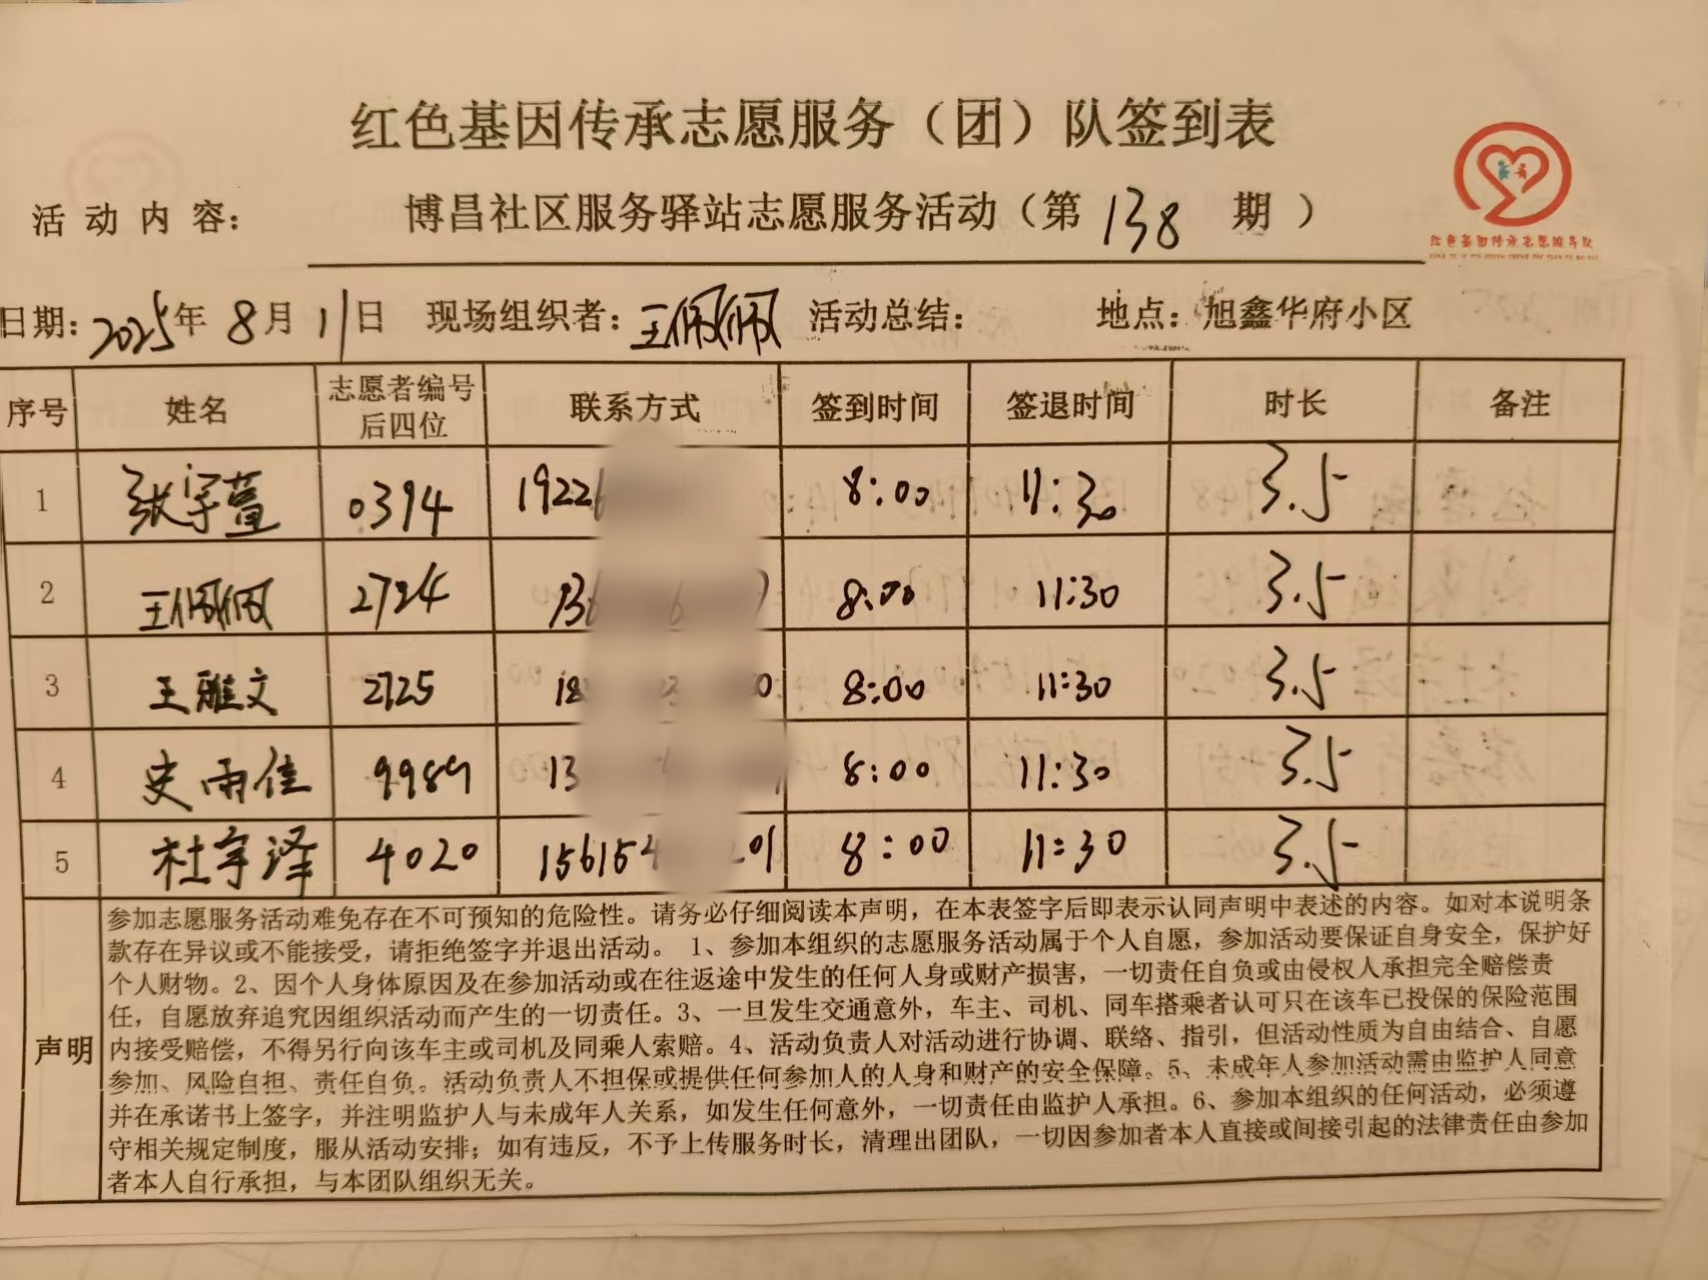 红色基因传承志愿服务（团）队签到表
活动内容： 博昌社区服务驿站志愿服务活动（第 138 期）
红色基因传承志愿服务队
日期：2025年 8月 11日 现场组织者：王佩佩 活动总结： 地点：旭鑫华府小区
序号 姓名 志愿者编号后四位 联系方式 签到时间 签退时间 时长 备注
1 张宇萱 0394 19226 8:00 11:30 3.5
2 王佩佩 2724 13 8:00 11:30 3.5
3 王雅文 2725 18 8:00 11:30 3.5
4 史雨佳 9989 13 8:00 11:30 3.5
5 杜宇泽 4020 156154 201 8:00 11:30 3.5
声明
参加志愿服务活动难免存在不可预知的危险性。请务必仔细阅读本声明，在本表签字后即表示认同声明中表述的内容。如对本说明条
款存在异议或不能接受，请拒绝签字并退出活动。 1、参加本组织的志愿服务活动属于个人自愿，参加活动要保证自身安全，保护好
个人财物。2、因个人身体原因及在参加活动或在往返途中发生的任何人身或财产损害，一切责任自负或由侵权人承担完全赔偿责
任，自愿放弃追究因组织活动而产生的一切责任。3、一旦发生交通意外，车主、司机、同车搭乘者认可只在该车已投保的保险范围
内接受赔偿，不得另行向该车主或司机及同乘人索赔。4、活动负责人对活动进行协调、联络、指引，但活动性质为自由结合、自愿
参加、风险自担、责任自负。活动负责人不担保或提供任何参加人的人身和财产的安全保障。5、未成年人参加活动需由监护人同意
并在承诺书上签字，并注明监护人与未成年人关系，如发生任何意外，一切责任由监护人承担。6、参加本组织的任何活动，必须遵
守相关规定制度，服从活动安排；如有违反，不予上传服务时长，清理出团队，一切因参加者本人直接或间接引起的法律责任由参加
者本人自行承担，与本团队组织无关。